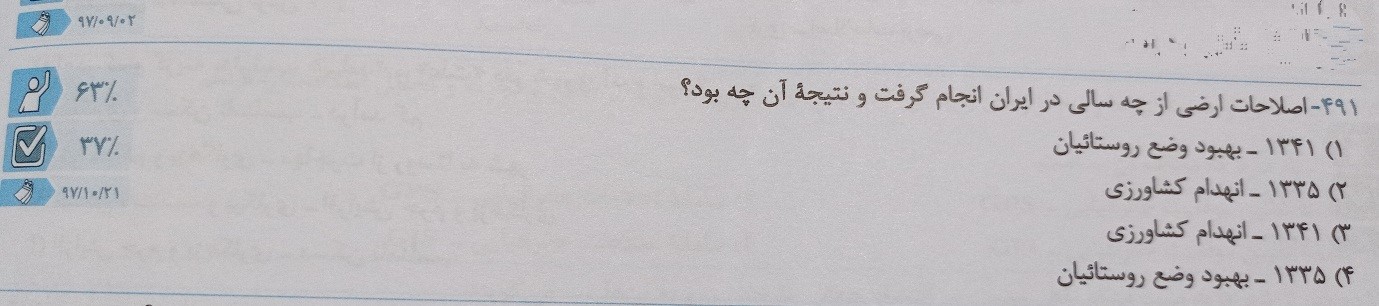 ۹۷/۰۹/۰۲
۴۹۱-اصلاحات ارضی از چه سالی در ایران انجام گرفت و نتیجهٔ آن چه بود؟
۶۳٪
۱) ۱۳۴۱ ـ بهبود وضع روستائیان
۳۷٪
۲) ۱۳۳۵ ـ انهدام کشاورزی
۹۷/۱۰/۲۱
۳) ۱۳۴۱ ـ انهدام کشاورزی
۴) ۱۳۳۵ ـ بهبود وضع روستائیان